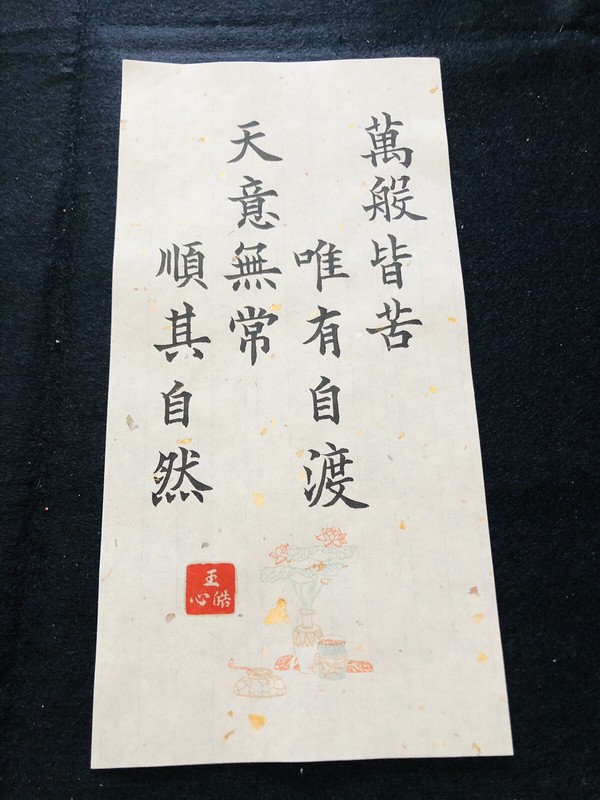 萬般皆苦
唯有自渡
天意無常
順其自然
王皓心